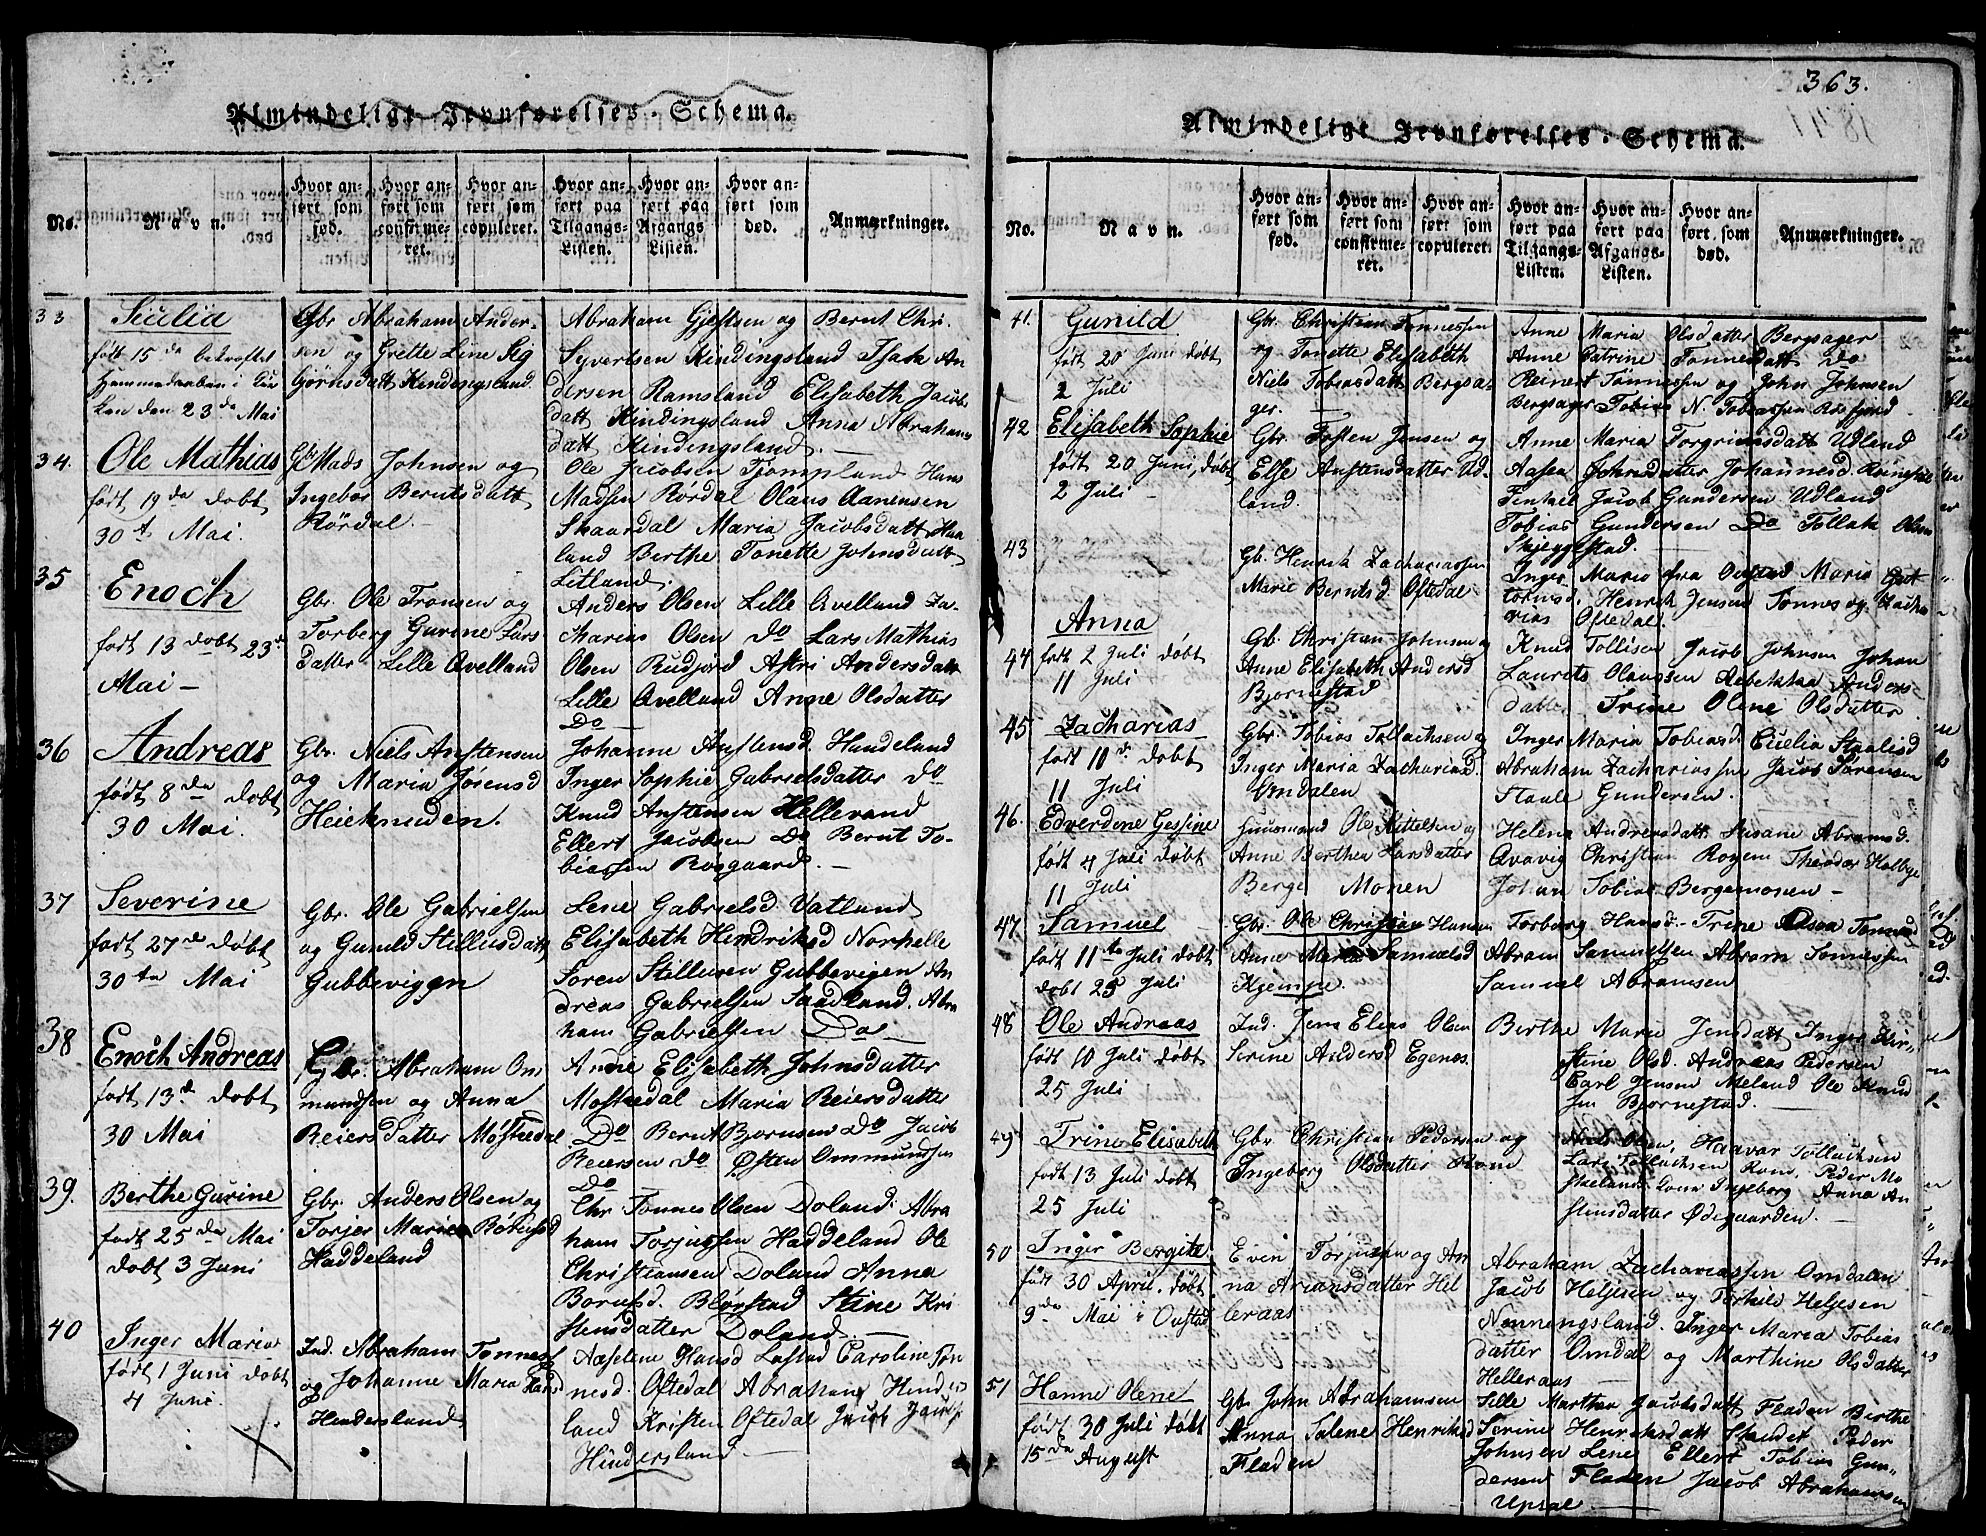 Almindeligt Jevnførelses-Schema.
No.
Navn.
Hvor anført som fød.
Hvor anført som confirmeret.
Hvor anført som copuleret.
Hvor anført paa Tilgangs-Listen.
Hvor anført paa Afgangs-Listen.
Hvor anført som død.
Anmærkninger.
33
født 15 da bekræftet
Hjemmedaaben i Kir
ken den 23 de Mai
Gbr Abraham Ander-
sen og Grette Line Sig
bjørnsdatt Hindingsland.
Abraham Gjestsen og Bernt Chr.
Syvertsen Kindingsland Isak An
dersen Ramsland Elisabeth Jacobs
datt Kindingsland Anna Abrahams
datt Kindingsland.
34.
Ole Mathias
født 19 da døbt
30 t Mai.
Gb Mads Johnsen og
Ingebor Berntsdatt
Rørdal.
Ole Jacobsen Tjompland Hans
Madsen Rørdal Olaus Aanensen
Skaardal Maria Jacobsdatt Haa
land Berthe Tonette Johnsdatt
Litland.
35
Enoch
født 13 døbt 23 de
Mai -
Gbr. Ole Tronsen og
Torberg Gurine Lars
datter Lille Avelland
Anders Olsen Lille Avelland Za
charias Olsen do Lars Mathias
Olsen Rudjord Astri Andersdatt
Lille Avelland Anne Olsdatter
Do
36
Andreas
født 8 da døbt
30 Mai.
Gbr. Niels Anstensen
og Maria Jørensd
Heieknuden.
Johanne Anstensd. Hundeland
Inger Sophie Gabrielsdatter do
Knud Anstensen Hellevand
Ellert Jacobsen Do Bernt To-
biassen Rosgaard. -
37
Severine
født 27 de døbt
30 ta Mai
Gbr. Ole Gabrielsen
og Gunild Stillusdatt
Gubbeviggen
Lene Gabrielsd. Vatland
Elisabeth Hendriksd Norhelle
Soren Stillufsen Gubbevigen An
dreas Gabrielsen Saadland. Abra
ham Gabrielsen Do -
38
Enoch Andreas
født 13 d døbt
30 Mai
Gbr. Abraham Om
mundsen og Anna
Reiersdatter Mosthedal
Andre Elisabeth Johnsdatter
Mosthedal Maria Reiersdatter
Do Bernt Bjornsen do Jacob
Reiersen do Østen Ommundsen
Do -
39.
Berthe Gurine
født 25 da Mai
døbt 3 Juni
Gbr. Anders Olsen og
Torjer Marie
Haddeland
Chr Tonnes Olsen Doland. Abra
ham Torjussen Haddeland Ole
Christiansen Doland Anna
Stine Kri
stensdatter Doland. -
40
Inger Maria
født 1 Juni døbt
4 Juni.
Ind. Abraham Tønness
og Johanne Maria Hansd
Hindersland
Axeline Hansd Løstad Caroline Tøn
nesd. Oftedal Abraham Hinders
land Kristen Oftedal Jacob
Hindersland -
363.
Almindeligt Jevnførelses-Schema.
No.
Navn.
Hvor anført som fød.
Hvor anført som confirmeret.
Hvor anført som copuleret.
Hvor anført paa Tilgangs-Listen.
Hvor anført paa Afgangs-Listen.
Hvor anført som død.
Anmærkninger.
41.
Gunild
født 20 Juni døbt
2 Juli
Gbr. Christian Tonnessen
og Tonette Elisabeth
Niels Tobiasdatt Bergsa-
ger. -
Anne Maria Olsdatter Bergsager
Anne Catrine Tonnesdatt do
Reinert Tønnessen og John Johnsen
Bergsager Tobias N. Tobiassen Rosfjord
42
Elisabeth Sophie
født 20 Juni, døbt
2 Juli -
Gbr. Tosten Jensen og
Else Anstensdatter Ud-
land.
Anne Maria Torgrimsdatt Udland
Aasen Johnsdatter Johannesd
Jacob Gundersen Udland
Tobias Gundersen Do Tollak Olsen
Skjeggestad.
43
Gbr. Henrik Zachariassen
Marie Berntsd. Oftedal
Inger Marie fra Ovstad Maria Gut
tormsd. Henrik Jensen Tonnes og Zacha
rias Oftedal.
44
Anna
født 2 Juli døbt
11 Juli
Gb. Christian Johnsen og
Anne Elisabeth Andersd
Bjornestad
Knud Tollisen Jacob Johnsen Johan
Laurits Olaussen Rebekka Anders-
datter Trine Olene Olsdatter
45
Zacharias
født 10 d. døbt
11 Juli
Gbr. Tobias Tollachsen og
Inger Maria Zachariasd.
Omdalen
Inger Maria Tobiasd. Cicelia Staalesd
Abraham Zachariassen Jacob Sørensen
Staale Gundersen.
46.
Edverdene Gessine
født 4 Juli døbt
11 Juli
Huusmand Ole Kittelsen og
Anne Berthea Hansdatter
Berge Monen
Helene Andreasdatt. Susane Abramsd.
Qvavig Christian Royem Theodor Holbye
Johan Tobias Bergemonen -
47
Samuel
født 11 te Juli døbt
døbt 25 Juli
Gbr. Ole Christian Hansen
Anne Maria Samuelsd
Kjempe.
Torborg Hansd. Trine
Abram Samuelsen Abram Tonnessen
Samuel Abramsen
48
Ole Andreas
født 10 Juli døbt
25 Juli
Ind. Jens Elias Olsen
Serine Andersd Egenes.
Berthe Marie Jensdatt Inger Kir-
stine Olsd. Andreas Pedersen
Carl Jensen Meland Ole Knud
sen Bjornestad. -
49
Trine Elisabeth
født 13 Juli døbt
25 Juli
Gbr Christian Pedersen og
Ingeborg Olsdatter Rom
Niels Olsen, Haavar Tollachsen
Lars Tollachsen Rom, Peder Mo
Stensdatter Ødegaarden. -
50
Inger Bergite.
født 30 April, døbt
9 da Mai i Ovstad
Even Torjussen og An
na Ariansdatter Hel
leraas
Abraham Zachariassen Omdalen
Jacob Heljesen og Torkild Heljesen
Nonnengsland. Inger Maria Tobias
datter Omdal og Marthine Olsdatter
Helleraas
51
Hanne Olene
født 30 Juli døbt
15 da August
Gb. John Abrahamsen
Anna Salene Henriksd
Fladen
Sille Marthea Jacobsdatt Fladen Berthe
Serine Henriksdatt Peder
Johnsen Lene Ellert Tobias Gun-
dersen Fladen Jacob Abrahamsen
Upsal